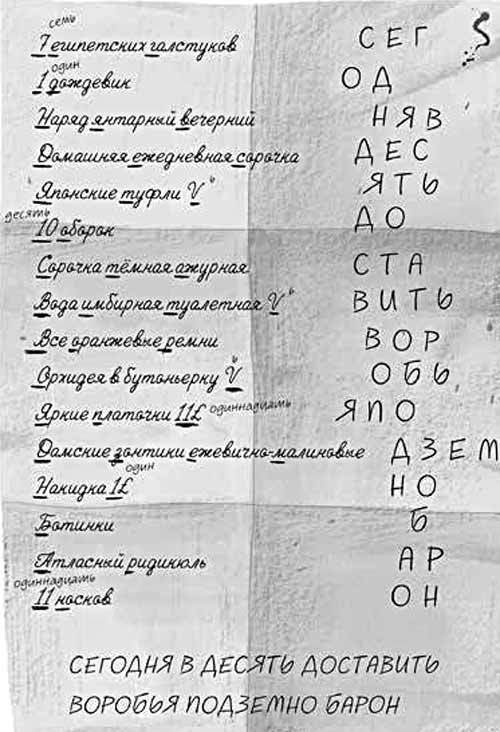 семь
7 египетских галстуков СЕГ
один
1 дождевик ОД
Наряд янтарный вечерний НЯВ
Домашняя ежедневная сорочка ДЕС
Японские туфли V ь ЯТЬ
десять
10 оборок ДО
Сорочка тёмная ажурная СТА
Вода имбирная туалетная V ь ВИТЬ
Все оранжевые ремни ВОР
Орхидея в бутоньерку V ь ОБЬ
Яркие платочки 11£ одиннадцать ЯПО
Дамские зонтики ежевично-малиновые ДЗЕМ
один
Накидка 1£ НО
Ботинки Б
Атласный ридикюль АР
одиннадцать
11 носков ОН
СЕГОДНЯ В ДЕСЯТЬ ДОСТАВИТЬ
ВОРОБЬЯ ПОДЗЕМНО БАРОН